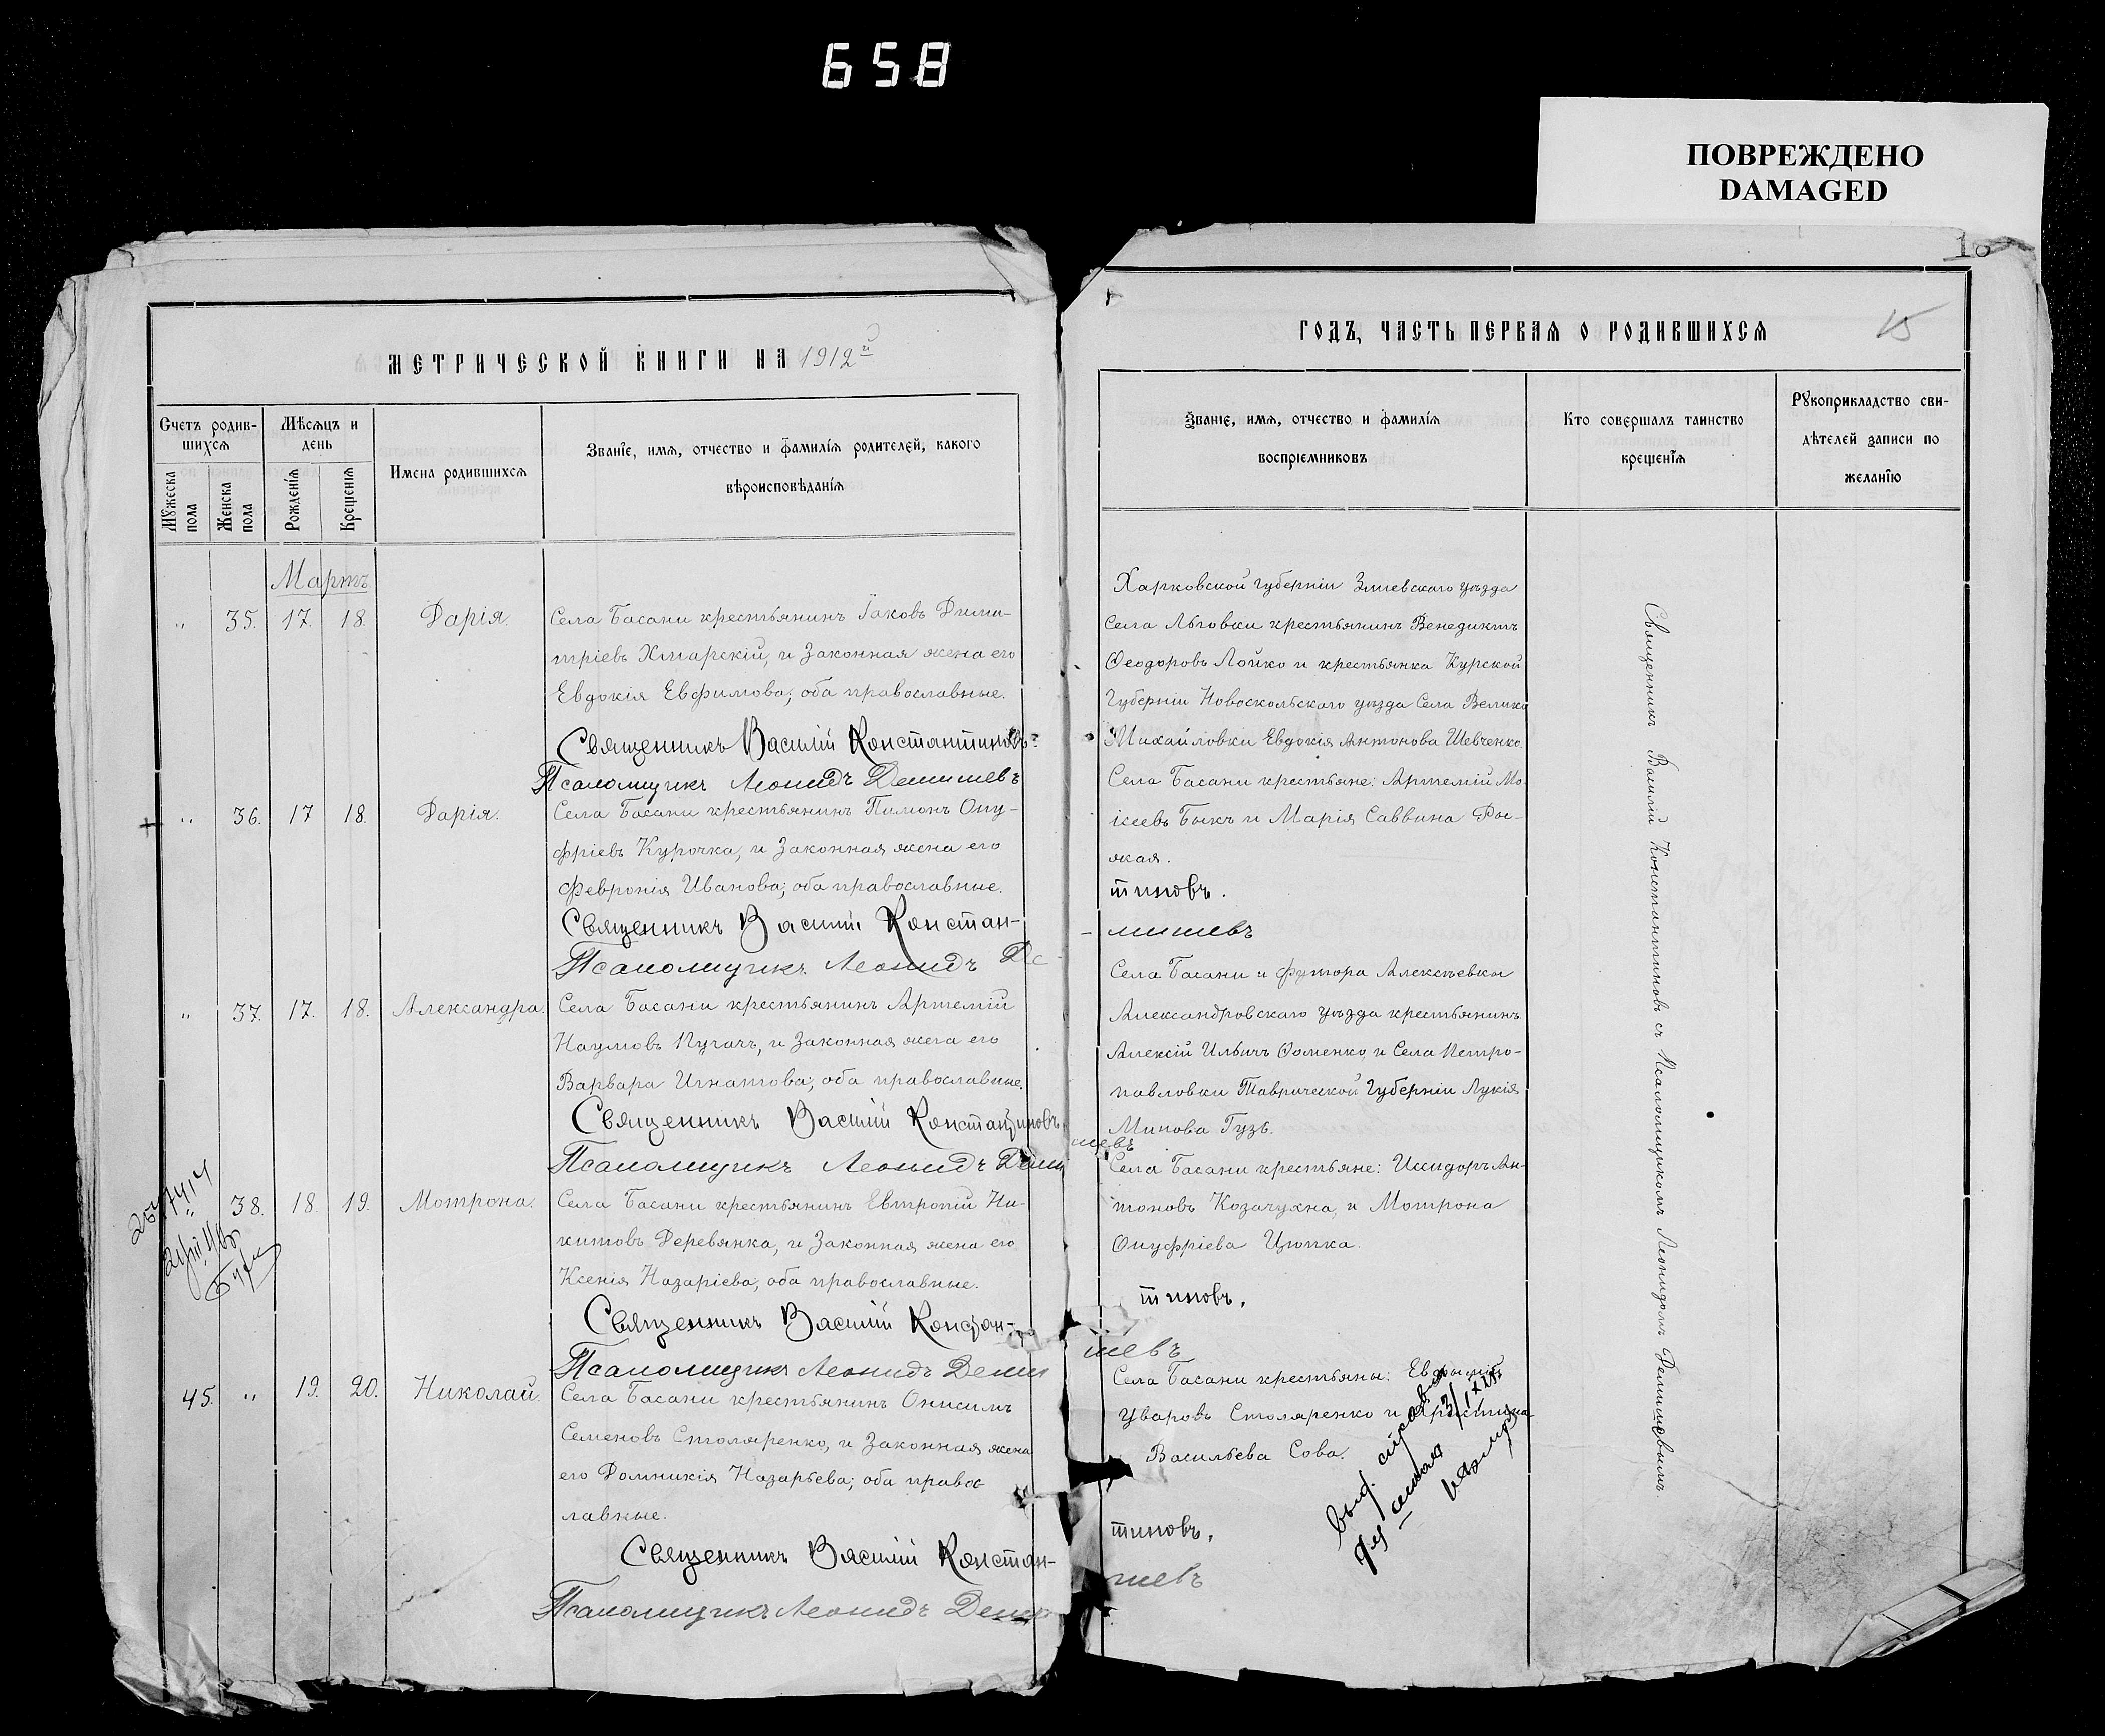 658
ПОВРЕЖДЕНО
DAMAGED
МЕТРИЧЕСКОЙ КНИГИ НА 1912 й
Счетъ родив-
шихся
Мѣсяцъ и
день
Имена родившихся
Званіе, имя, отчество и фамилія родителей, какого
вѣроисповѣданія
Мужеска
пола
Женска
пола
Рожденія
Крещенія
Мартъ
" 35. 17. 18. Дарія.
Села Басани крестьянинъ Іаковъ Дими-
тріевъ Хмарскій, и законная жена его
Евдокія Евфимова; оба православные.
Священникъ Василій Константиновъ
Псаломщикъ Леонидъ Демишевъ
" 36. 17 18. Дарія.
Села Басани крестьянинъ Пимонъ Ону-
фріевъ Курочка, и законная жена его
Февронія Иванова; оба православные.
Священникъ Василій Констан-
Псаломщикъ Леонидъ Де-
" 37. 17. 18. Александра.
Села Басани крестьянинъ Артемій
Наумовъ Пугачъ, и законная жена его
Варвара Игнатова; оба православные.
Священникъ Василій Константиновъ
Псаломщикъ Леонидъ Деми
" 38. 18. 19. Мотрона.
Села Басани крестьянинъ Евтропій Ни-
китовъ Деревянка, и законная жена его
Ксенія Назаріева, оба православные.
Священникъ Василій Констан-
Псаломщикъ Леонидъ Деми
45. " 19. 20. Николай.
Села Басани крестьянинъ Онисимъ
Семеновъ Столяренко, и законная жена
его Домникія Назарьева; оба право
славные.
Священникъ Василій Констан-
Псаломщикъ Леонидъ Деми
15
ГОДЪ, ЧАСТЬ ПЕРВАЯ О РОДИВШИХСЯ
Званіе, имя, отчество и фамилія
воспріемниковъ
Кто совершалъ таинство
крещенія
Рукоприкладство сви-
дѣтелей записи по
желанію
Харковской губерніи Зміевскаго уѣзда
Села Льговки крестьянинъ Венедиктъ
Ѳеодоровъ Лойко и крестьянка Курской
Губерніи Новоскольскаго уѣзда Села Велико
Михайловки Евдокія Антонова Шевченко.
Села Басани крестьяне: Артемій Мо
исеевъ Быкъ и Марія Саввина Ры-
жая.
тиновъ.
мишевъ
Села Басани и хутора Алексѣевки
Александровскаго уѣзда крестьянинъ
Алексій Ильичъ Ѳоменко, и Села Петро-
павловки Таврической Губерніи Лукія
Минова Гузь.
шевъ
Села Басани крестьяне: Исидоръ Ан-
тоновъ Козачухна, и Мотрона
Онуфріева Цюпка.
тиновъ.
шевъ
Села Басани крестьяны:
Уваровъ Столяренко и Христина
Васильева Сова.
тиновъ.
шевъ
Священникъ Василій Константиновъ съ Псаломщикомъ Леонидомъ Демишевымъ.